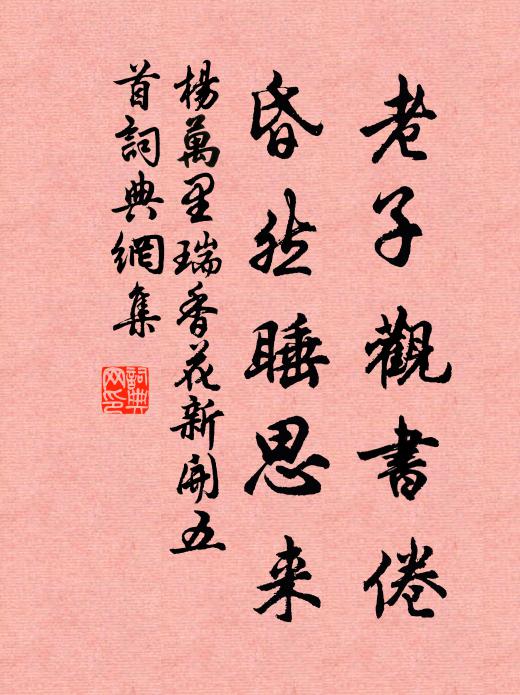 老子觀書倦
昏然睡思来
楊萬里瑞香花新開五
首詞典網集
詞典
网印